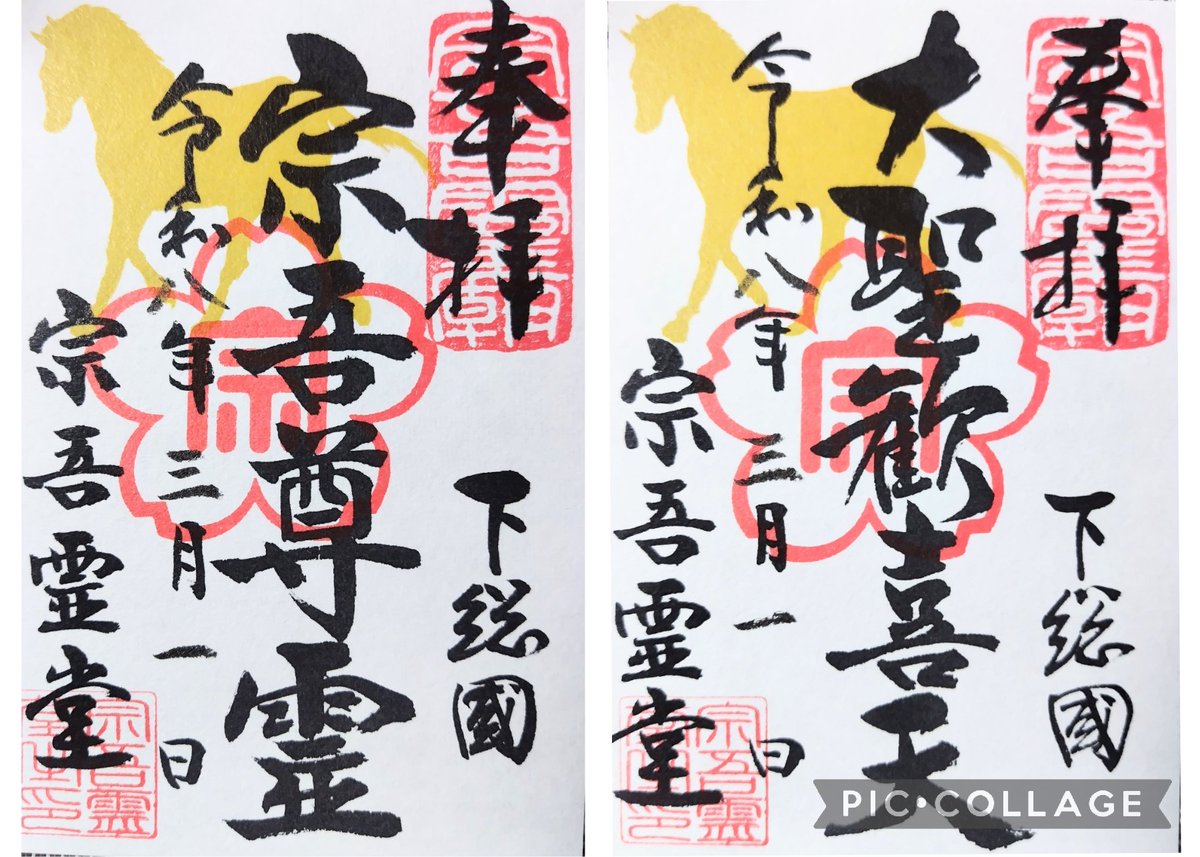 奉拝
下総國
宗吾尊霊
令和八年三月一日
宗吾霊堂
奉拝
下総國
大聖歓喜天
令和八年三月一日
宗吾霊堂
PIC•COLLAGE